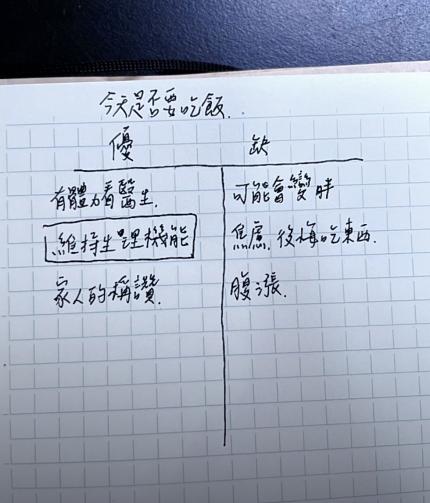 今天是否要吃飯..
優 缺
有體力看醫生. 可能會變胖
維持生理機能 焦慮.後悔吃東西.
家人的稱讚. 腹漲.